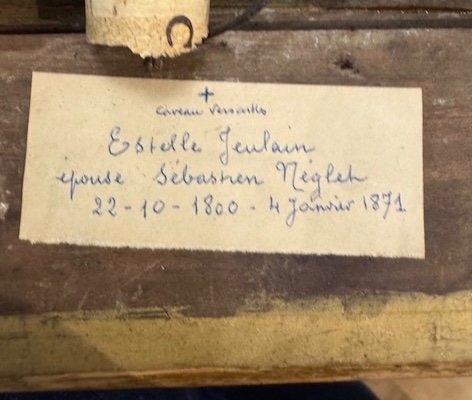 +
Caveau Versailles
Estelle Jeulain
épouse Sébastien Néglet
22-10-1800 - 4 Janvier 1871